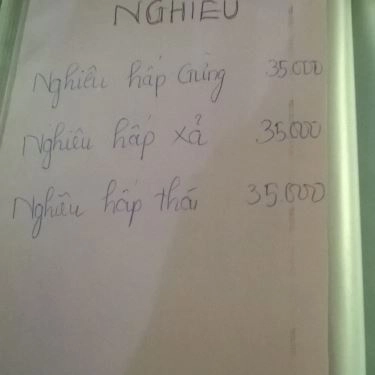 NGHIÊU
Nghiêu hấp Gừng 35.000
Nghiêu hấp xả 35.000
Nghiêu hấp thái 35.000